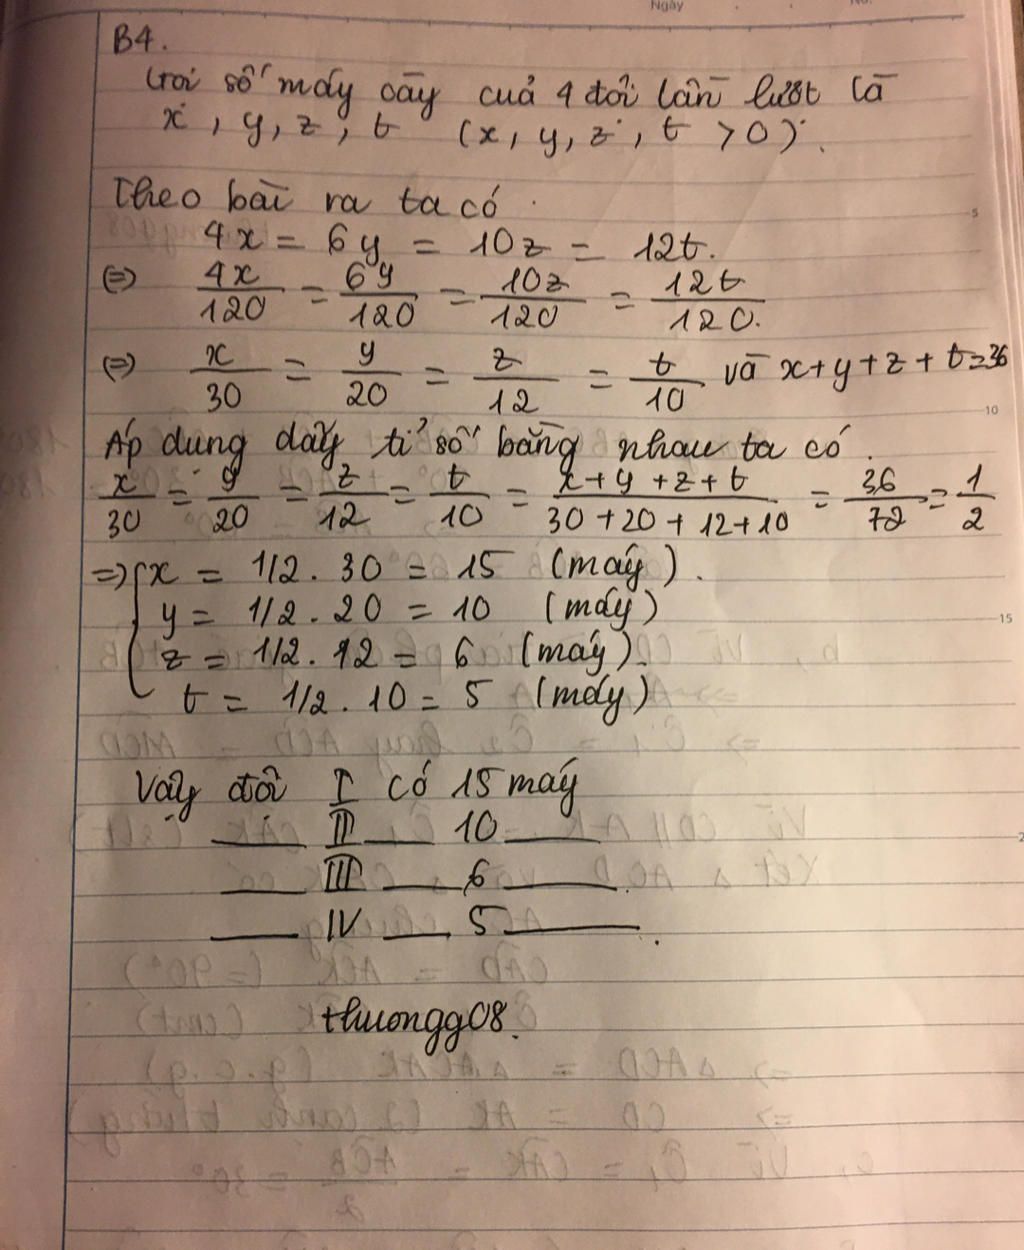 Ngày
No.
B4.
Gọi số máy cày của 4 đội lần lượt là
x, y, z, t (x, y, z, t > 0).
Theo bài ra ta có
4x = 6y = 10z = 12t.
(=) 4x/120 = 6y/120 = 10z/120 = 12t/120.
(=) x/30 = y/20 = z/12 = t/10 và x+y+z+t=36
Áp dụng dãy tỉ số bằng nhau ta có.
x/30 = y/20 = z/12 = t/10 = x+y+z+t/30+20+12+10 = 36/72 = 1/2
=> { x = 1/2. 30 = 15 (máy).
y = 1/2. 20 = 10 (máy)
z = 1/2. 12 = 6 (máy).
t = 1/2. 10 = 5 (máy)
Vậy đội I có 15 máy
___ II ___ 10 ___
___ III ___ 6 ___.
___ IV ___ 5 ___.
thuongg08.
5
10
15